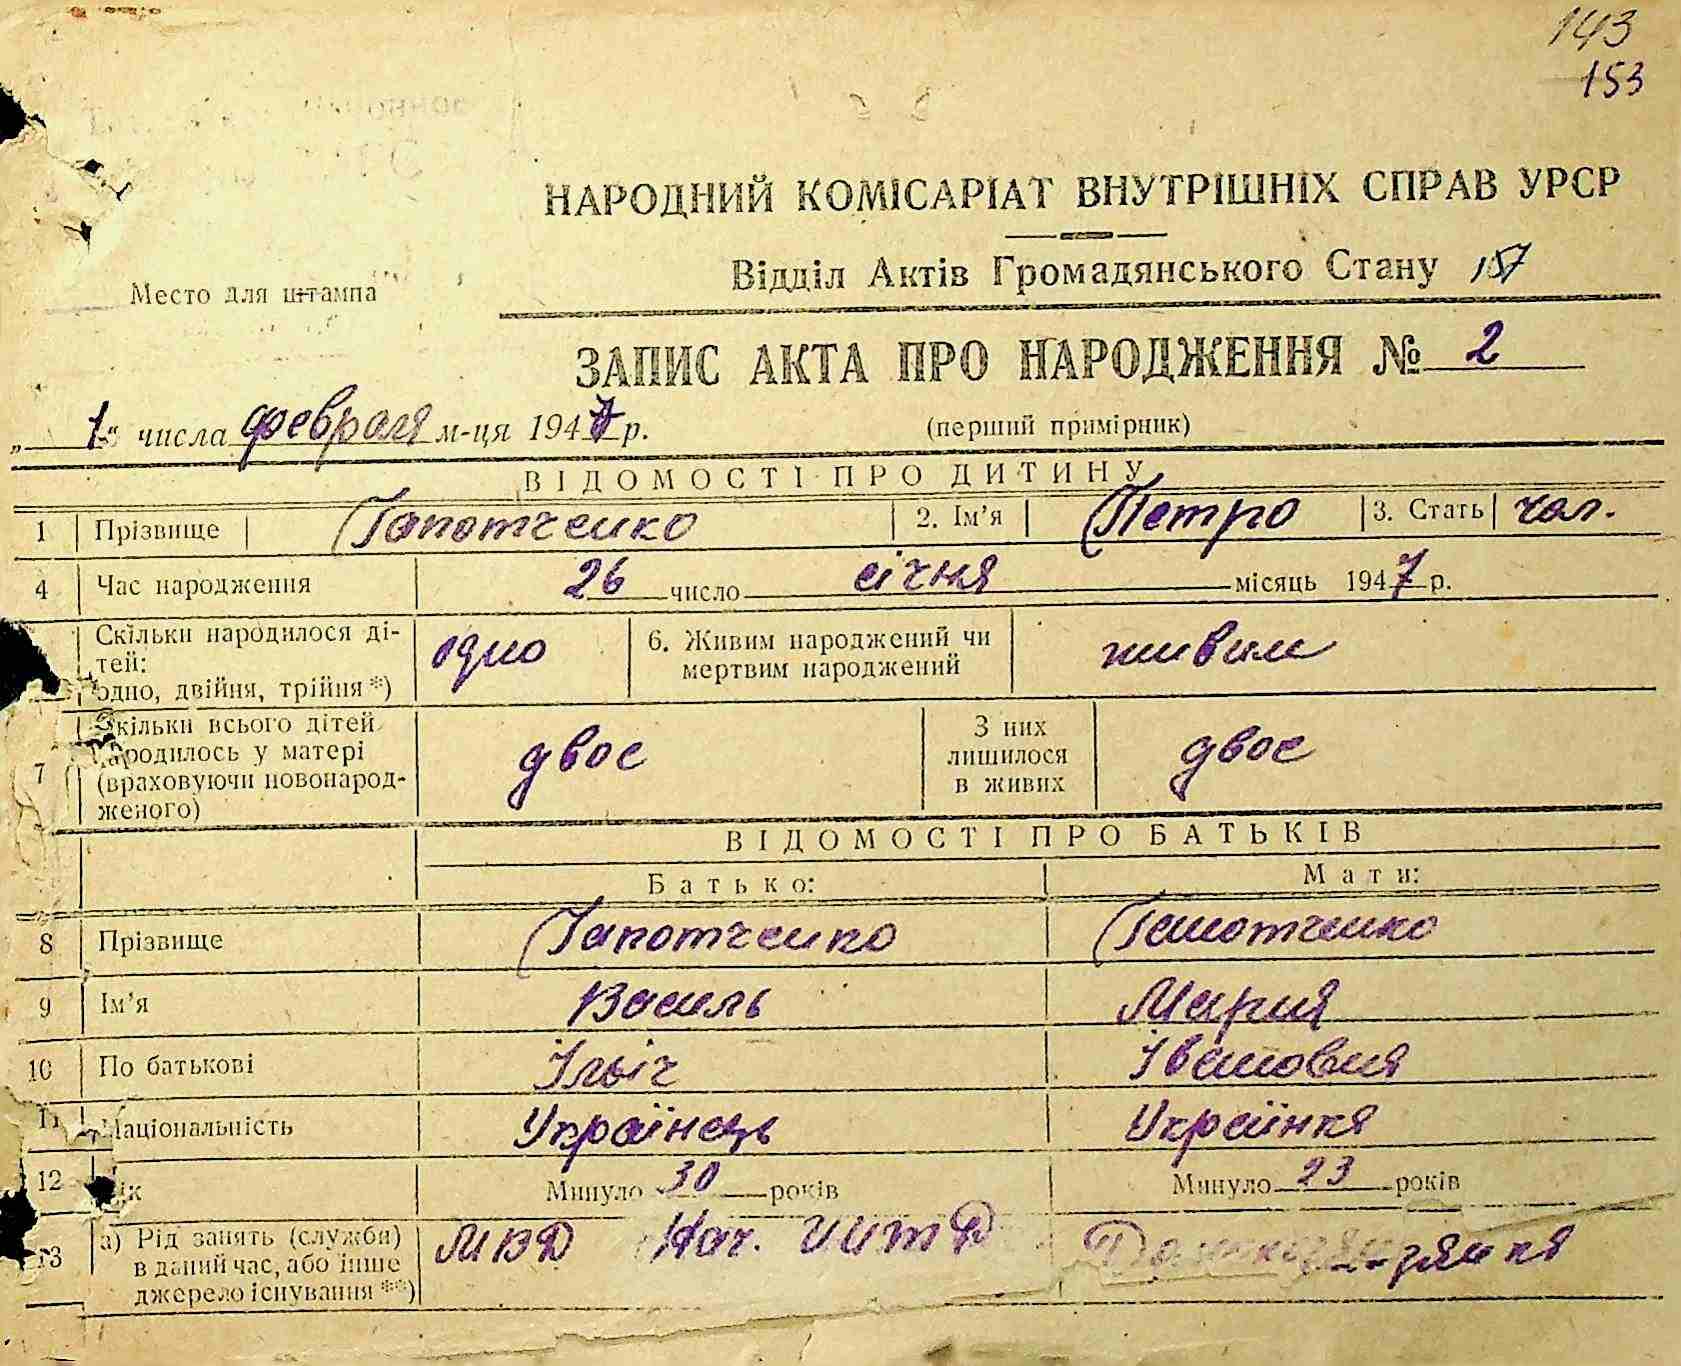 143
153
НАРОДНИЙ КОМІСАРІАТ ВНУТРІШНІХ СПРАВ УРСР
Відділ Актів Громадянського Стану 157
Место для штампа
ЗАПИС АКТА ПРО НАРОДЖЕННЯ № 2
„ 1 “ числа февраля м-ця 1947 р. (перший примірник)
ВІДОМОСТІ ПРО ДИТИНУ
1 Прізвище Гапотченко 2. Ім'я Петро 3. Стать чол.
4 Час народження 26 число січня місяць 1947 р.
Скільки народилося ді-
тей:
одно, двійня, трійня *) одно 6. Живим народжений чи
мертвим народжений живим
7 Скільки всього дітей
народилось у матері
(враховуючи новонарод-
женого) двое З них
лишилося
в живих двое
ВІДОМОСТІ ПРО БАТЬКІВ
Батько: Мати:
8 Прізвище Гапотченко Гапотченко
9 Ім'я Василь Мария
10 По батькові Ільіч Івановня
11 Національність Українець Українкя
12 Вік Минуло 30 років Минуло 23 років
13 а) Рід занять (служби)
в даний час, або інше
джерело існування **) МВД Нач.